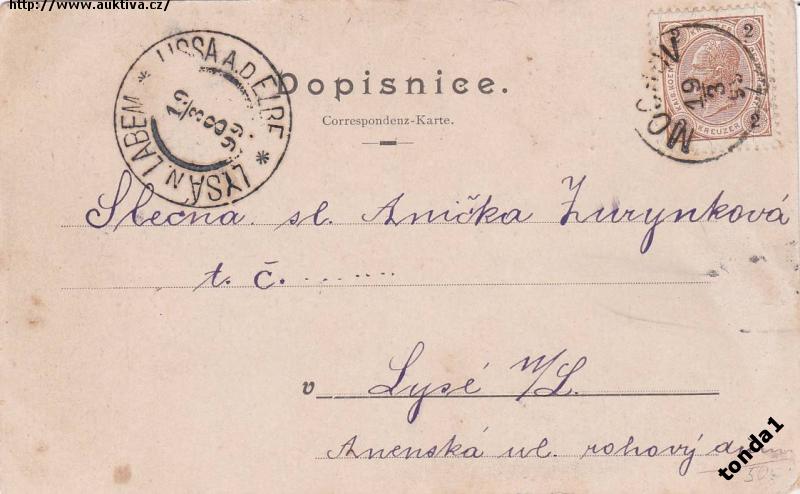 http://www.auktiva.cz/
* LISSA A.D. ELBE * LYSÁ N. LABEM
19
3
8
99
Dopisnice.
Correspondenz-Karte.
2
2
2
KREUZER
19
3
Slečna sl. Anička Zurynková
t. č. ..........
v Lysé n/L.
Anenská ul. rohový
tonda1